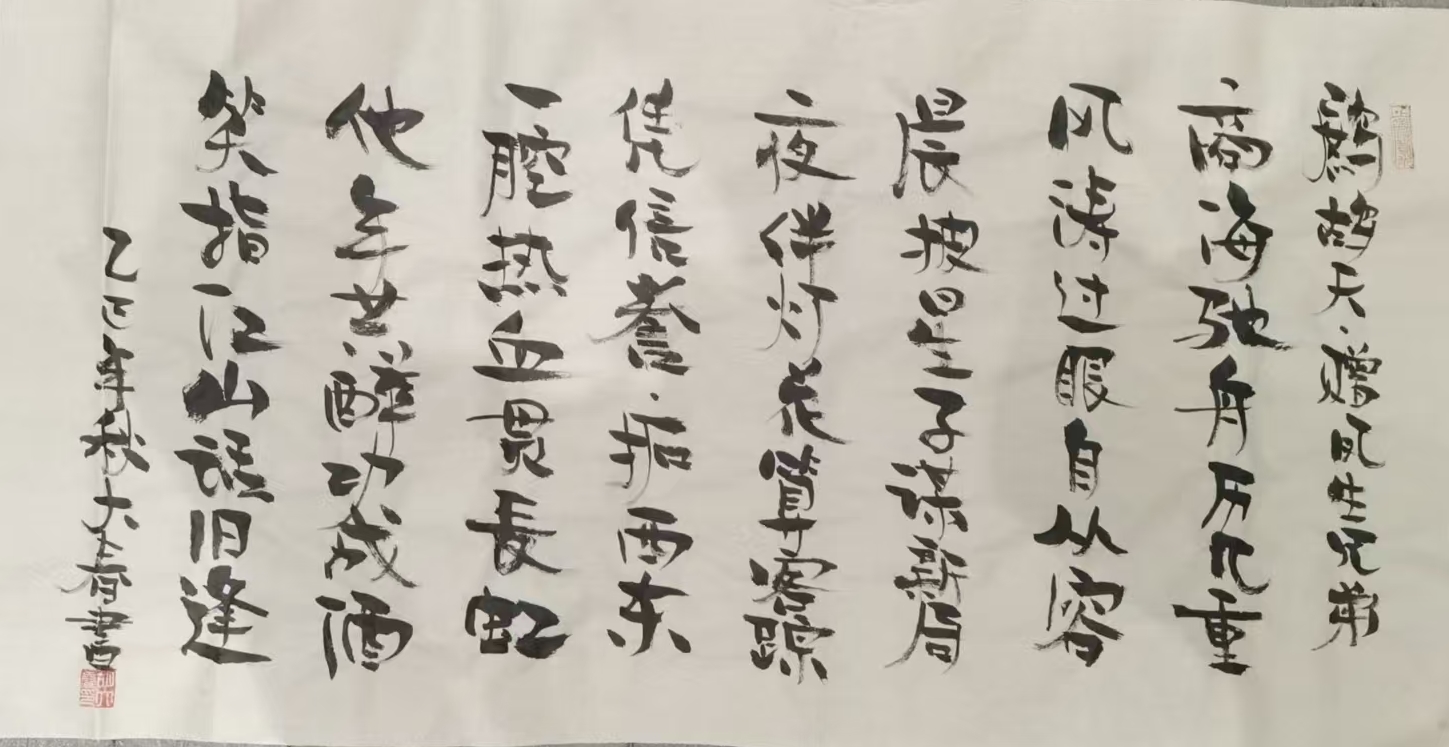 鹧鸪天·赠生兄弟
商海驰舟历几重
风涛过眼自从容
晨披星子谋新局
夜伴灯花算客踪
凭信誉·拓西东
一腔热血贯長虹
他年共醉功成酒
笑指江山话旧逢
乙巳年秋大書